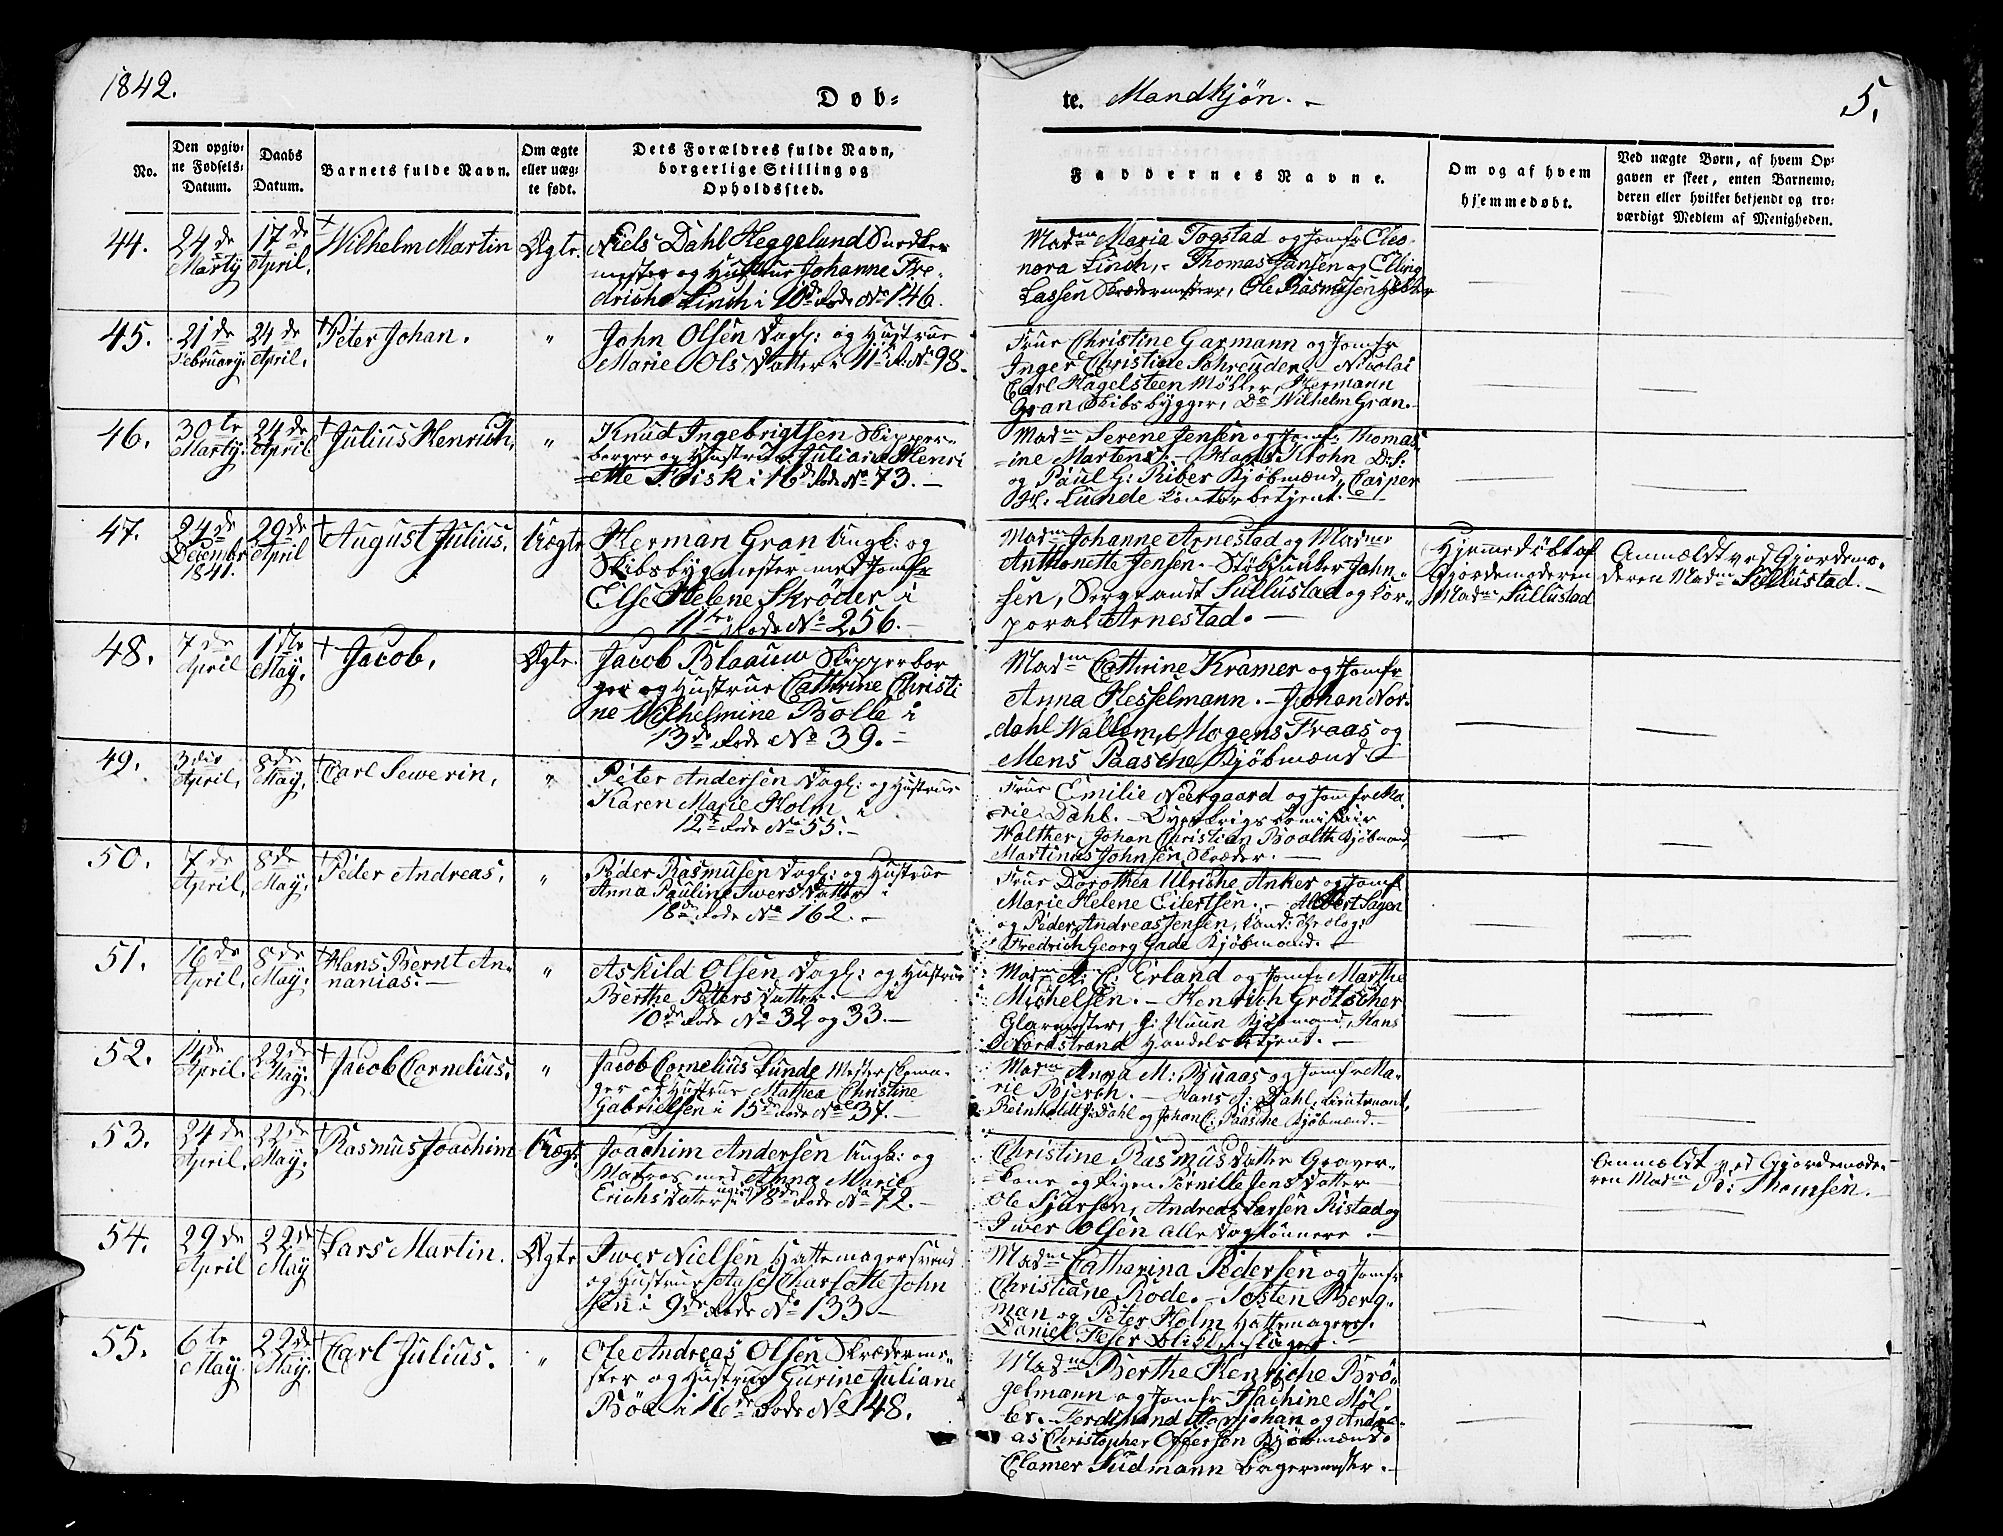 1842.
Døb-
te. Mandkjøn. -
5.
No.
Den opgiv-
ne Fødsels-
Datum.
Daabs
Datum.
Barnets fulde Navn.
Om ægte
eller uæg-
te født.
Dets Forældres fulde Navn,
borgerlige Stilling og
Opholdssted.
Faddernes Navne.
Om og af hvem
hjemmedøbt.
Ved uægte Børn, af hvem Op-
gaven er skeet, enten Barnemo-
deren eller hvilket bekjendt og tro-
værdigt Medlem af Menigheden.
44.
24de
Martij
17de
April.
+ Wilhelm Martin
Ægte.
Niels Dahl Heggelund Snedker
mester og Hustrue Johanne Fre-
driche Linch i 10de Rode No 146.
Madme Maria Togstad og Jomfr Cleo-
nora Linch, - Thomas Jansen og Elling
Lassen Skrædermestere, Ole Rasmusen Høker
45.
21de
Februarij.
24de
April.
+ Peter Johan.
"
John Olsen Dagl: og Hustrue
Marie Ols Datter i 11te R. No 98.
Frue Christine Garmann og Jomfr
Inger Christine Schreuder - Nicolai
Carl Hagelsteen Møller, Hermann
Gran Skibsbygger, Do Wilhelm Gran.
46.
30te
Martij.
24de
April
+ Julius Henrich,
"
Knud Ingebrigtsen Skipper-
borger og Hustrue Juliane Henri
ette Fisk i 16de Rode No 73. -
Madme Serene Jensen og Jomfr Thomas
ine Martens. - Hans Krohn D: S:
og Paul G: Riber Kjøbmænd, Casper
H. Lunde Contorbetjent. -
47.
24de
Decembr
1841.
29de
April
+ August Julius.
Uægte
Herman Gran Ungk: og
Skibsbygmester med Jomfr
Else Helene Skrøder i
11te Rode No 256. -
Madme Johanne Arnestad og Madme
Anthonette Jensen - Støkjunker John-
sen, Sergeandt Sullustad og Cor-
poral Arnestad. -
Hjemmedöbt af
Gjordemoderen
Madme Sullustad
Anmældt ved Gjordemo-
deren Madme Sullustad. -
48.
7de
April
1ste
May.
+ Jacob.
Ægte.
Jacob Blaauw Skipperbor
ger og Hustrue Cathrine Christi
ne Wilhelmine Bolle i
13de Rode No 39. -
Madme Cathrine Kramer og Jomfr
Anna Hesselmann. - Johan Nor-
dahl Wallem, Mogens Fraas og
Mens Paasche Kjøbmænd -
49.
3die
April,
8de
May.
+ Carl Sewerin,
"
Peter Andersen Dagl: og Hustrue
Karen Marie Holm i
12te Rode No 55. -
Frue Emilie Neergaard og Jomfr Ma-
rie Dahl. -
Walther, Johan Christian Boalth Kjøbmand,
Martinus Johnsen Skræder. -
50.
7de
April,
8de
May.
+ Peder Andreas,
"
Peder Rasmusen Dagl: og Hustrue
Anna Pauline Iwers Datter i
18de Rode No 162. -
Frue Dorothea Ulriche Anker og Jomf
Marie Helene Eilertsen. - Albert Sagen
og Peder Andreas Jensen, Cand: theolog:
Fredrich Georg Gade Kjøbmand. -
51.
16de
April,
8de
May.
+ Hans Bernt An-
nanias. -
"
Askild Olsen Dagl: og Hustrue
Berthe Peters Datter. i
10de Rode No 32 og 33. -
Madme A. C. Erland og Jomfr Marthe
Michelsen. - Henrich Grötscher
Glarmester, J: Huun Kjøbmand, Hans
Nordstrand Handelsbetjent. -
52.
14de
April.
22de
May.
+ Jacob Cornelius.
"
Jacob Cornelius Lunde Mesterskoma-
ger og Hustrue Mathea Christine
Gabrielsen i 15de Rode No 37. -
Madme Anna M: Buaas og Jomfr Ma-
rie Bjerch. - Hans J: Dahl, Lieutenant,
Reinholdt J: Dahl og Johan C: Paasche Kjøbmænd. -
53.
24de
April.
22de
May.
+ Rasmus Joachim
Uægt.
Joachim Andersen Ungk: og
Matros med Anna Marie
Erichs Datter i 18de Rode No 72. -
Christine Rasmusdatter Graver-
kone og Pigen Pernille Jens Datter
Ole Sjursen, Andreas Larsen Ristad og
Iwer Olsen alle Dagløhnere -
Anmældt ved Gjordemode-
ren Madme B: Thomsen. -
54.
29de
April
22de
May
+ Lars Martin.
Ægte
Iwer Nielsen Hattemagersvend
og Hustrue Anse Charlotte John
sen i 9de Rode No 133 -
Madme Catharina Pedersen og Jomfr
Christiane Rode. - Tosten Berg-
man og Peter Holm Hattemagere,
Daniel Feser Blikkenslager
55.
6te
May.
22de
May.
+ Carl Julius.
"
Ole Andreas Olsen Skræderme-
ster og Hustrue Gurine Juliane
Böe i 16de Rode No 148.
Madme Berthe Henriche Brö-
gelmann og Jomfr Hachine Møl-
ler. - Ferdinand Storjohan og Andre-
as Christopher Offersen Kjøbmænd.
Clamer Sudmann Bagermester. -